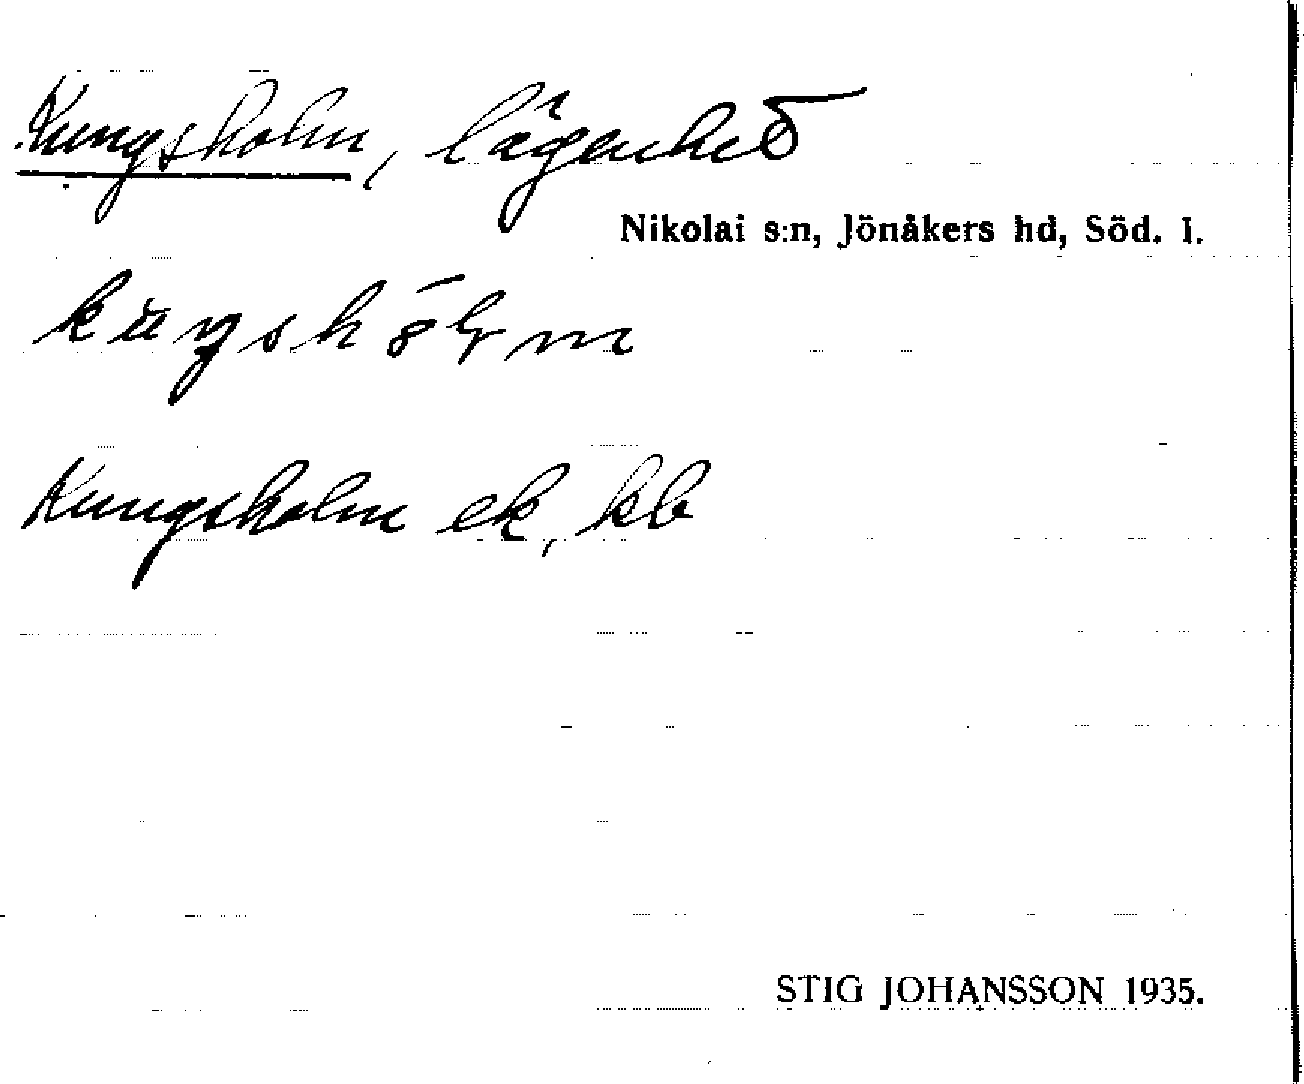 Kungsholm, lägenhet
Nikolai s:n, Jönåkers hd, Söd. l.
Kungsholm ek, kb
STIG JOHANSSON 1935.